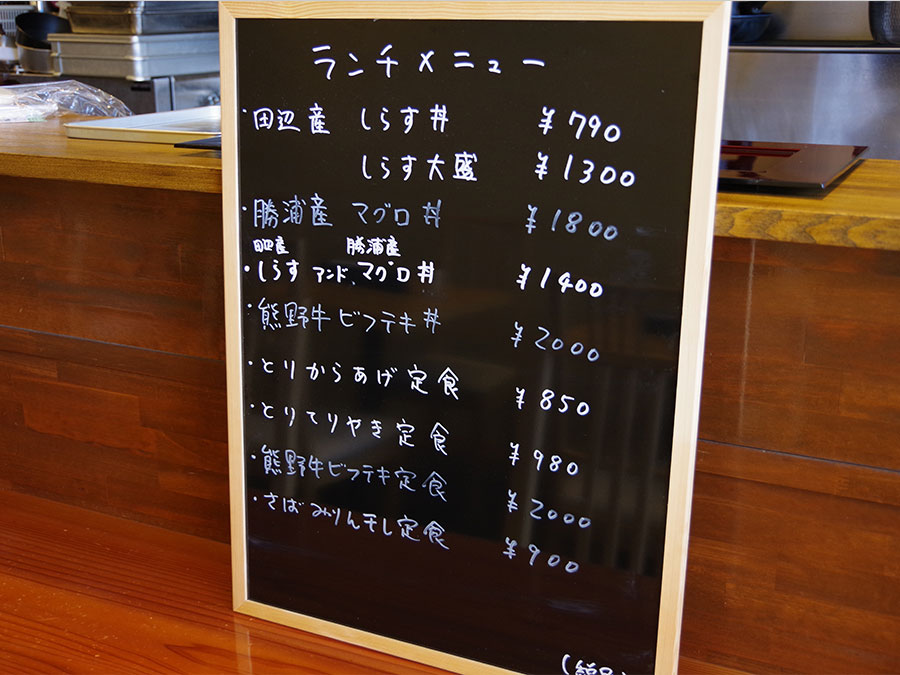 ランチメニュー
・田辺産 しらす丼 ¥790
しらす大盛 ¥1300
・勝浦産 マグロ丼 ¥1800
田辺産 勝浦産
・しらす アンド、マグロ丼 ¥1400
・熊野牛ビフテキ丼 ¥2000
・とりからあげ定食 ¥850
・とりてりやき定食 ¥980
・熊野牛ビフテキ定食 ¥2000
・さばみりん干し定食 ¥900